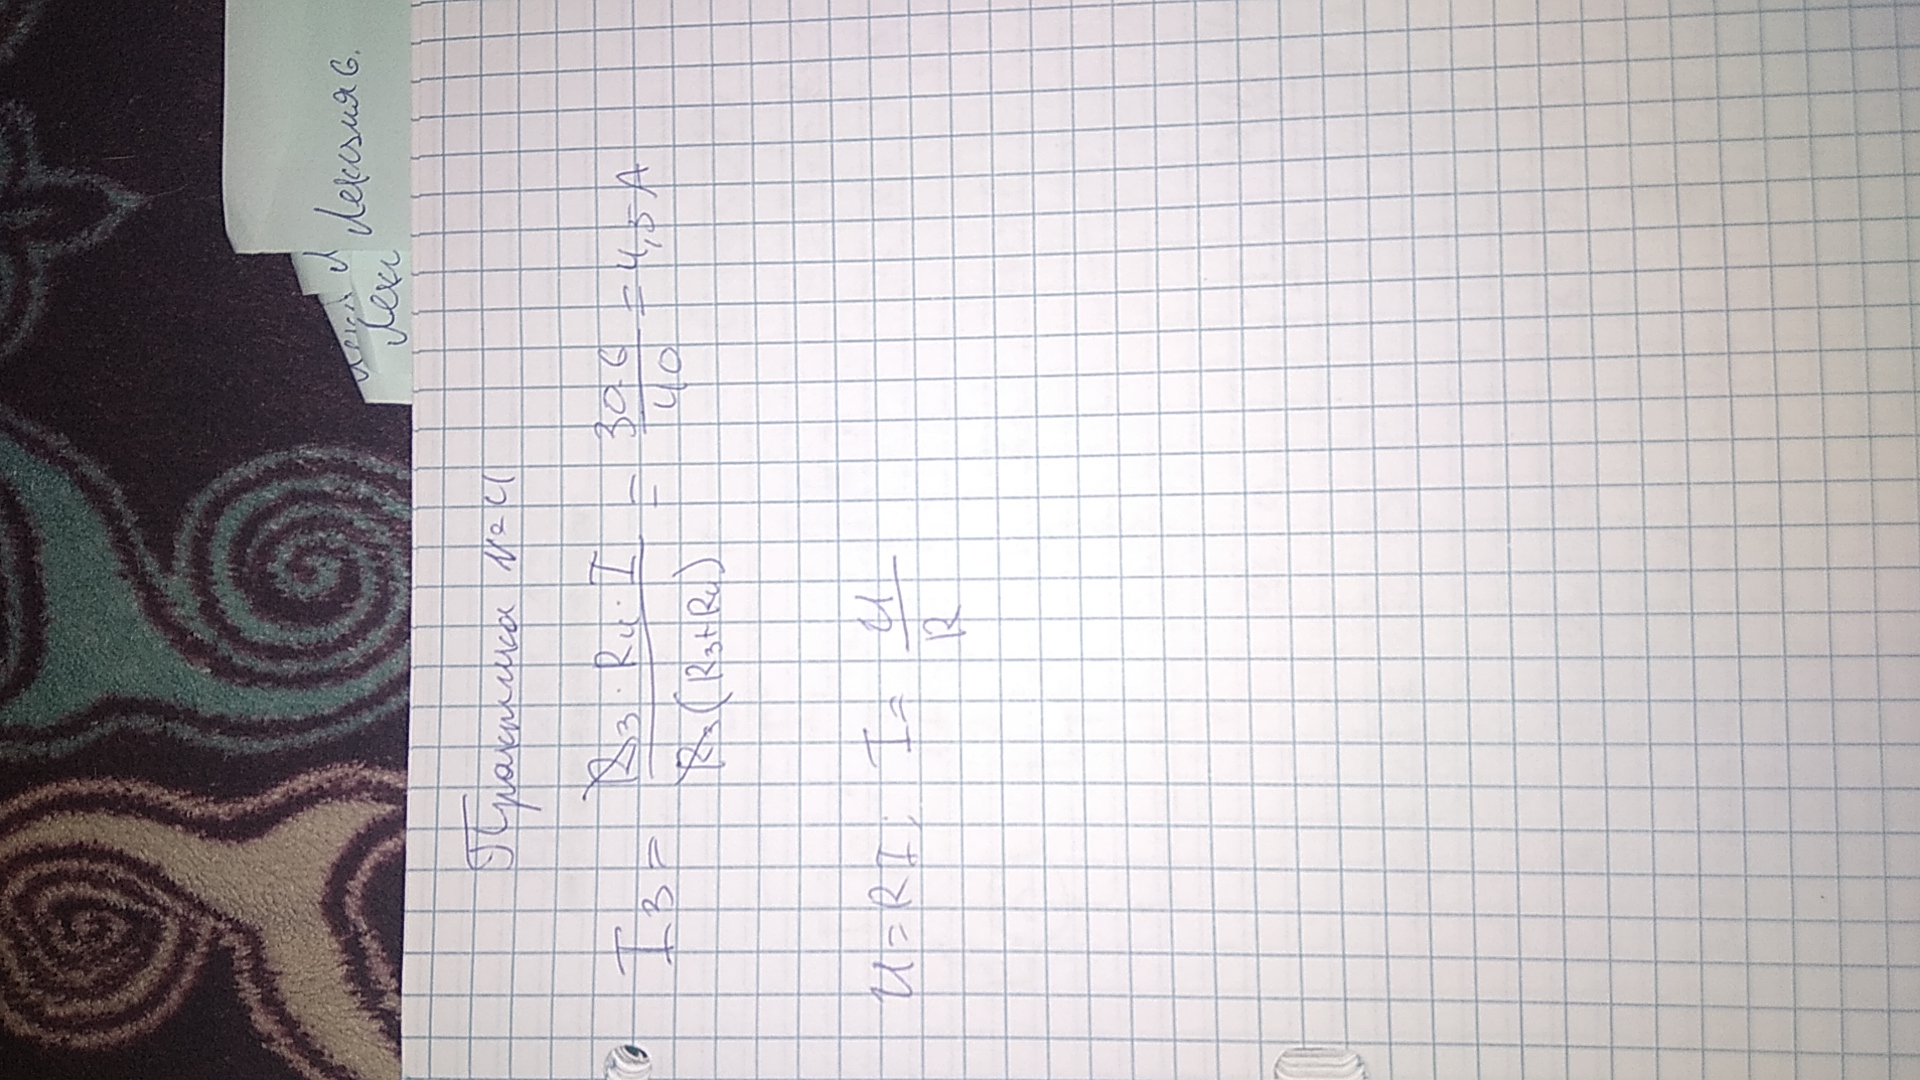 Лекция 6.
Лекц
Практика №4
I₃ = R₃·R₄·I / R₃(R₃+R₄) = 30·6 / 40 = 4,5 А
U=RI; I= U / R